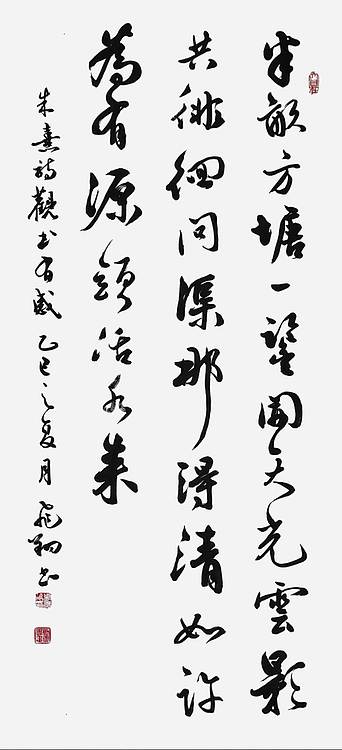 半畝方塘一鑒開天光雲影
共徘徊問渠那得清如許
為有源頭活水來
朱熹詩觀書有感 乙巳之夏月 飛翔書